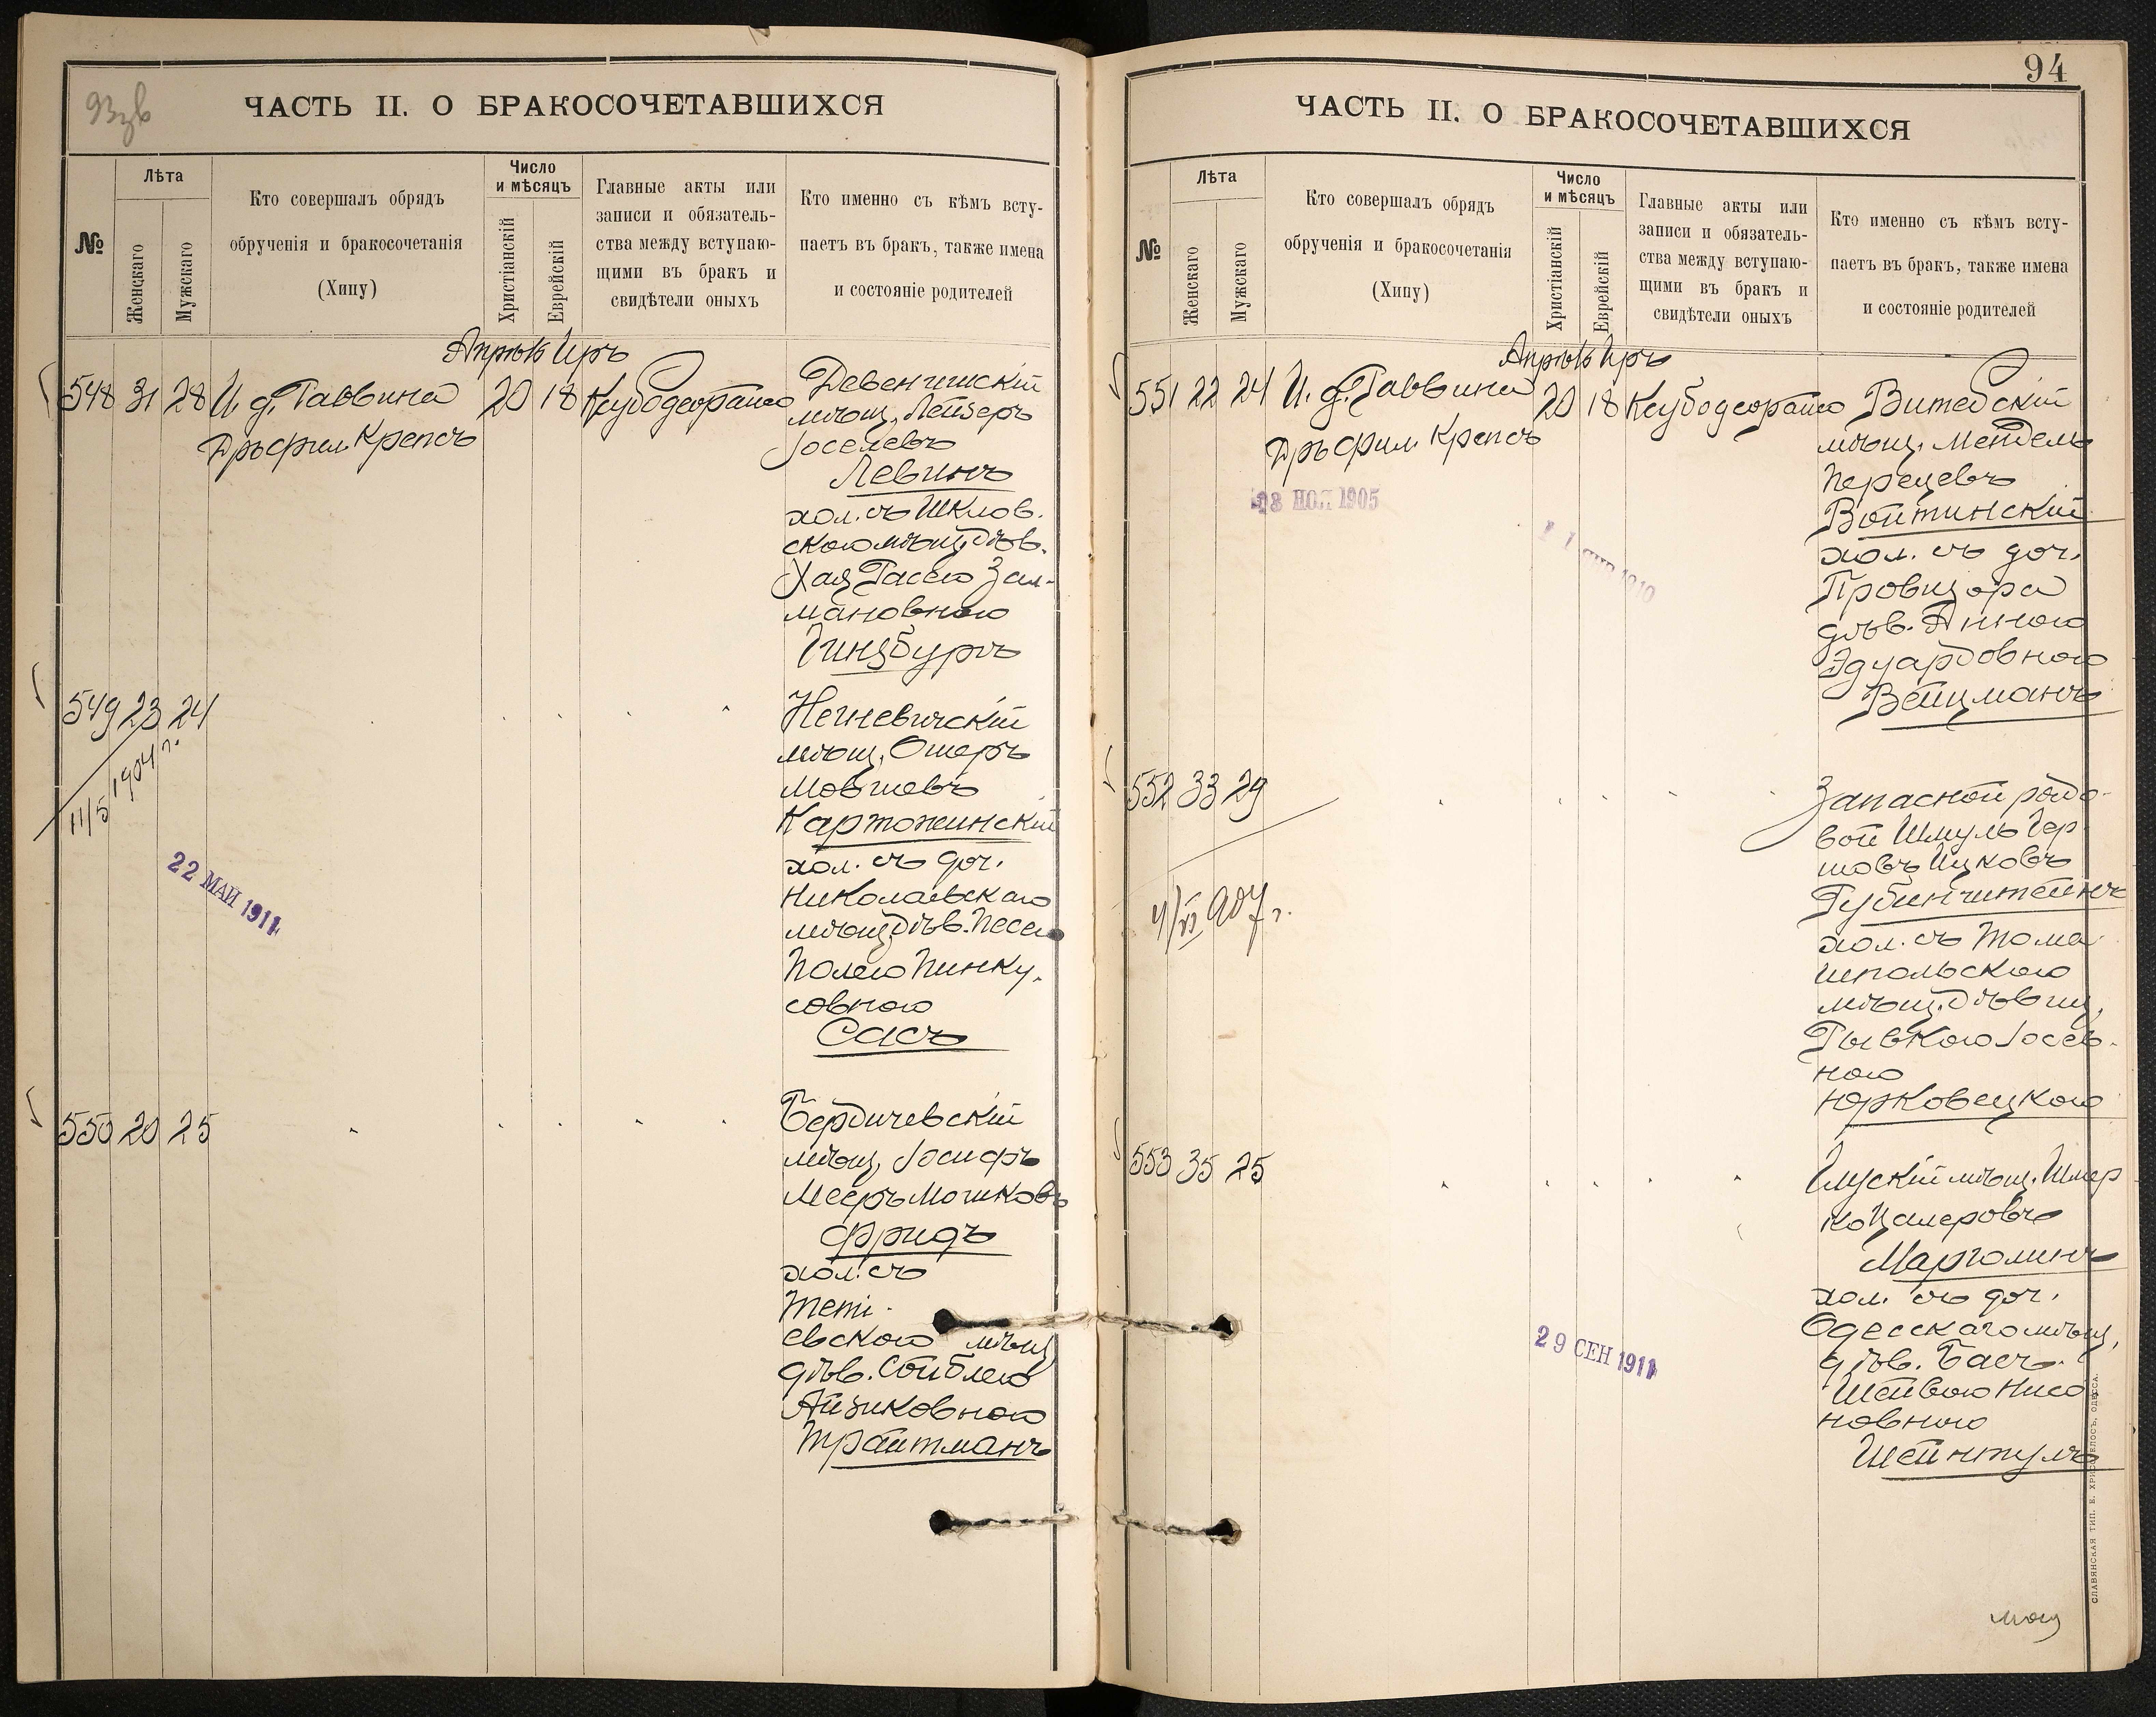 93зв
ЧАСТЬ II. О БРАКОСОЧЕТАВШИХСЯ
№
Лѣта
Женскаго
Мужскаго
Кто совершалъ обрядъ
обрученія и бракосочетанія
(Хипу)
Число
и мѣсяцъ
Христіанскій
Еврейскій
Главные акты или
записи и обязатель-
ства между вступаю-
щими въ бракъ и
свидѣтели оныхъ
Кто именно съ кѣмъ всту-
паетъ въ бракъ, также имена
и состояніе родителей
Апрѣль Иръ
548 31 28 И. д. Раввина 20 18
Дръ фил. Крепсъ
Девенишскій
мѣщ. Лейзеръ
Іоселевъ
Левинъ
хол. съ Шклов.
скою мѣщ. дѣв.
Хая Расею Зал-
мановною
Гинзбургъ
549 23 24
11/5 1904 г.
22 МАЙ 1911
Негневичскій
мѣщ. Ошеръ
Мовшевъ
Картожинскій
хол. съ доч.
Николаевскаго
мѣщ. дѣв. Песею
Полею Пинку-
совною
Сасъ
550 20 25
Бердичевскій
мѣщ. Іосифъ
Мееръ Мошковъ
Фридъ
хол. съ
Теті-
евскою мѣщ
дѣв. Сойблею
Айзиковною
Трайтманъ
94
ЧАСТЬ II. О БРАКОСОЧЕТАВШИХСЯ
№
Лѣта
Женскаго
Мужскаго
Кто совершалъ обрядъ
обрученія и бракосочетанія
(Хипу)
Число
и мѣсяцъ
Христіанскій
Еврейскій
Главные акты или
записи и обязатель-
ства между вступаю-
щими въ бракъ и
свидѣтели оныхъ
Кто именно съ кѣмъ всту-
паетъ въ бракъ, также имена
и состояніе родителей
Апрѣль Иръ
551 22 24 И. д. Раввина 20 18
Дръ фил. Крепсъ
1905
1910
Витебскій
мѣщ. Мендель
Перецевъ
Войтинскій
хол. съ доч.
Провизора
дѣв. Анною
Эдуардовною
Вейцманъ
552 33 29
4/VI 907 г.
Запасной рядо-
вой Шмуль Гер-
шовъ Ицковъ
Рубинштейнъ
хол. съ Тома
шпольскою
мѣщ. дѣвиц.
Рывкою Іосев-
ною
Юрковецкою
553 35 25
29 СЕН 1911
Глускій мѣщ. Шмер
ко Цалеровъ
Марголинъ
хол. съ доч.
Одесскаго мѣщ.
дѣв. Басъ-
Шейвою Нисо
новною
Шейнтулъ
СЛАВЯНСКАЯ ТИП. Е. ХРИСОГЕЛОСЪ, ОДЕССА.